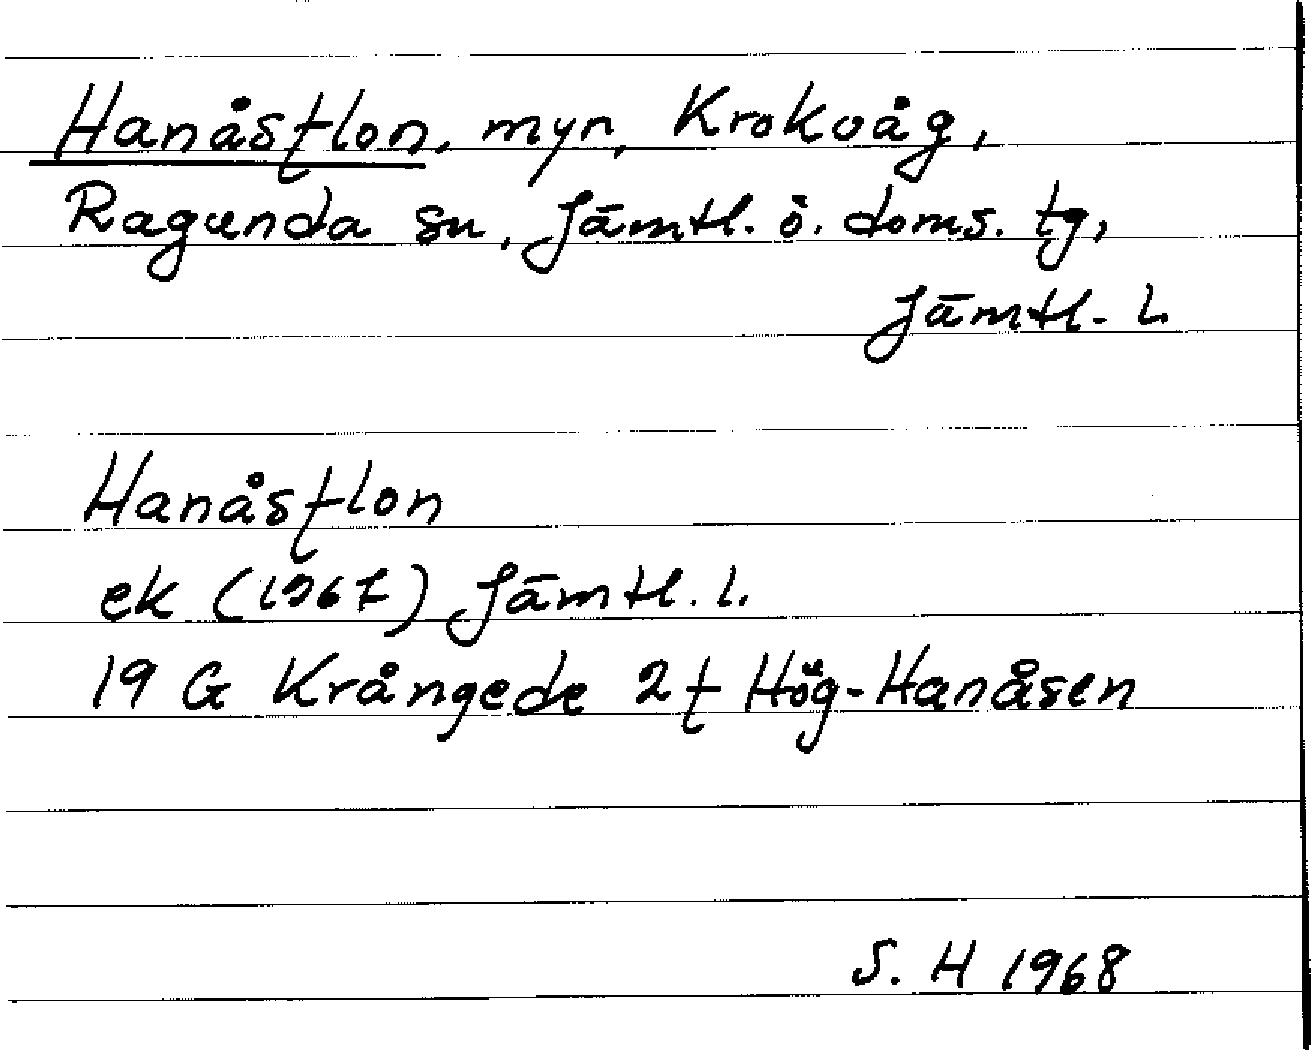 Hanåsflon, myr, Krokvåg,
Ragunda sn, Jämtl. ö. doms. tg,
Jämtl. L
Hanåsflon
ek (1967) Jämtl. l.
19 G Krångede 2f Hög-Hanåsen
S. H 1968